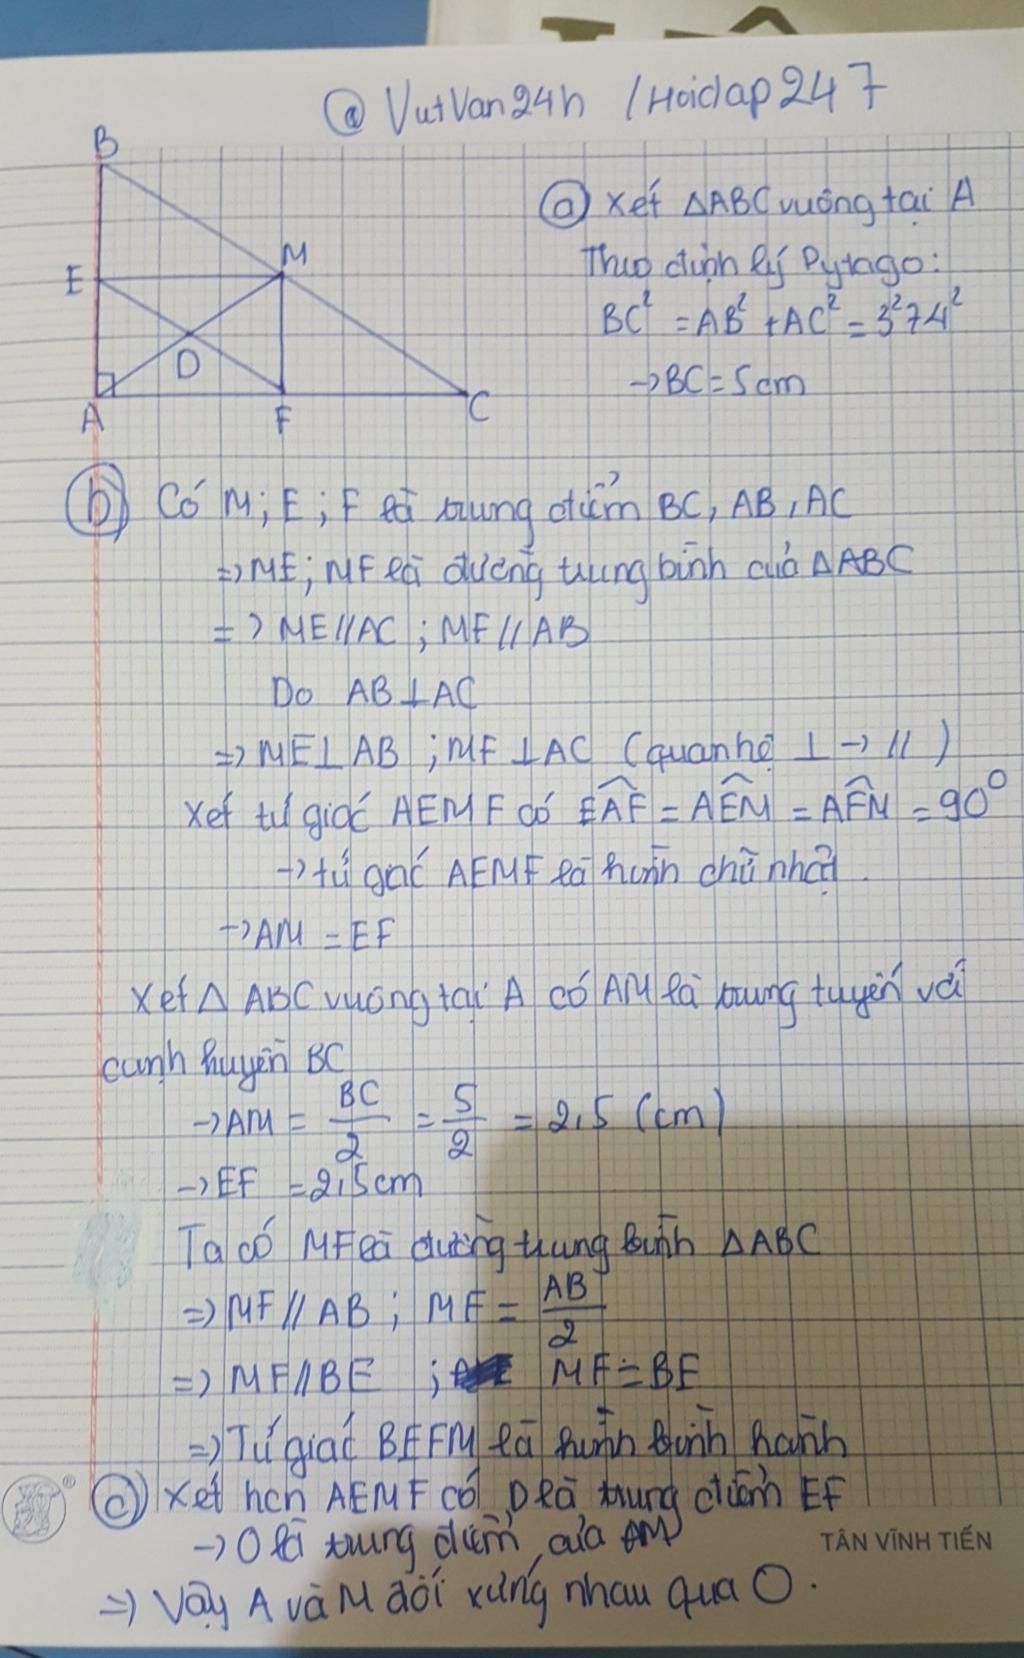 @ VutVan24h / Hoidap247
B
E
M
D
A
F
C
a) Xét ΔABC vuông tại A
Theo định lý Pytago:
BC² = AB² + AC² = 3²74²
→ BC = 5cm
b) Có M; E; F là trung điểm BC, AB, AC
=> ME; MF là đường trung bình của ΔABC
=> ME // AC ; MF // AB
Do AB ⊥ AC
=> ME ⊥ AB ; MF ⊥ AC (quan hệ ⊥ → //)
Xét tứ giác AEMF có EÂF = AÊM = AF̂M = 90⁰
→ tứ giác AEMF là hình chữ nhật.
→ AM = EF
Xét Δ ABC vuông tại A có AM là trung tuyến với
cạnh huyền BC
→ AM = BC/2 = 5/2 = 2,5 (cm)
→ EF = 2,5cm
Ta có MF là đường trung bình ΔABC
=> MF // AB ; MF = AB/2
=> MF // BE ; MF = BE
=> Tứ giác BEFM là hình bình hành
c) Xét hcn AEMF có O là trung điểm EF
→ O là trung điểm của AM
=> Vậy A và M đối xứng nhau qua O.
TÂN VĨNH TIẾN